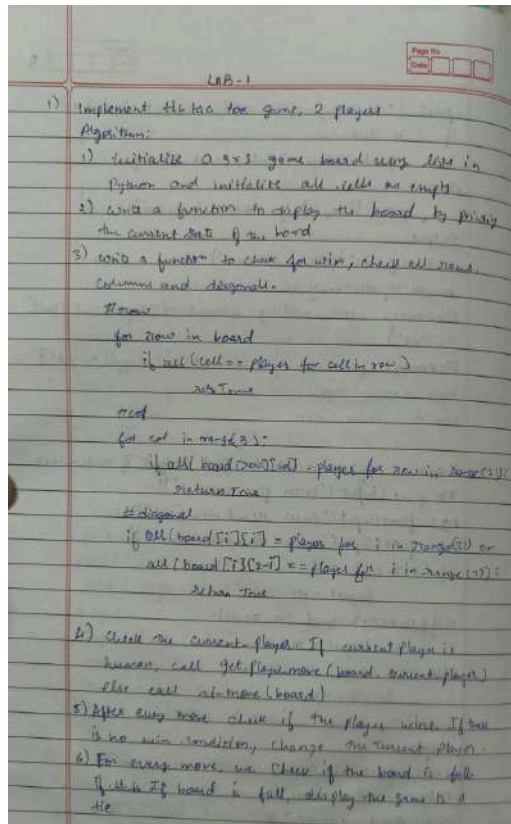 Page No
Date
LAB-1
1) Implement tic tac toe game, 2 players
Algorithm:
1) Initialise a 3x3 game board using lists in
Python and initialise all cells as empty
2) write a function to display the board, by printing
the current state of the board
3) write a function to check for win; check all rows,
columns and diagonals.
#row
for row in board
if all (cell == player for cell in row)
return True
#col
for col in range(3):
if all( board[row][col] = player for row in range(3)):
return True
#diagonal
if all (board [i][i] = player for i in range(3) or
all (board [i][2-i] == player for i in range(3)):
return True
4) Check the current-player. If current player is
human, call get-player-move (board, current player)
else call ai-move (board)
5) After every move check if the player wins. If there
is no win condition, change the current player.
6) For every move, we check if the board is full
If it is If board is full, display the game is a
tie.